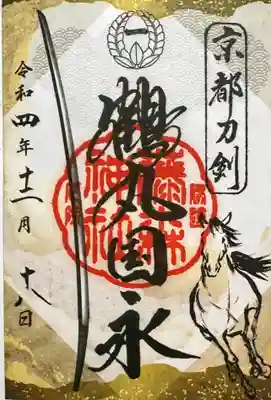 京都刀剣
一
鶴丸国永
令和四年十二月十八日